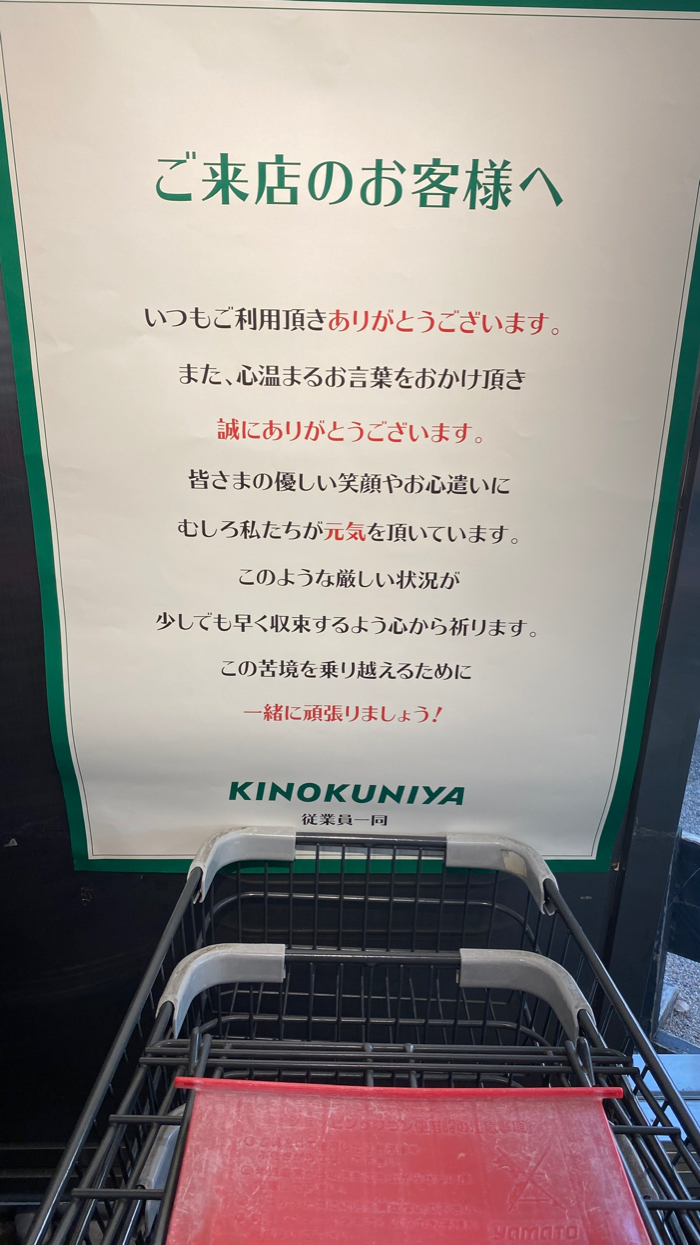 ご来店のお客様へ
いつもご利用頂きありがとうございます。
また、心温まるお言葉をおかけ頂き
誠にありがとうございます。
皆さまの優しい笑顔やお心遣いに
むしろ私たちが元気を頂いています。
このような厳しい状況が
少しでも早く収束するよう心から祈ります。
この苦境を乗り越えるために
一緒に頑張りましょう!
KINOKUNIYA
従業員一同
yamato